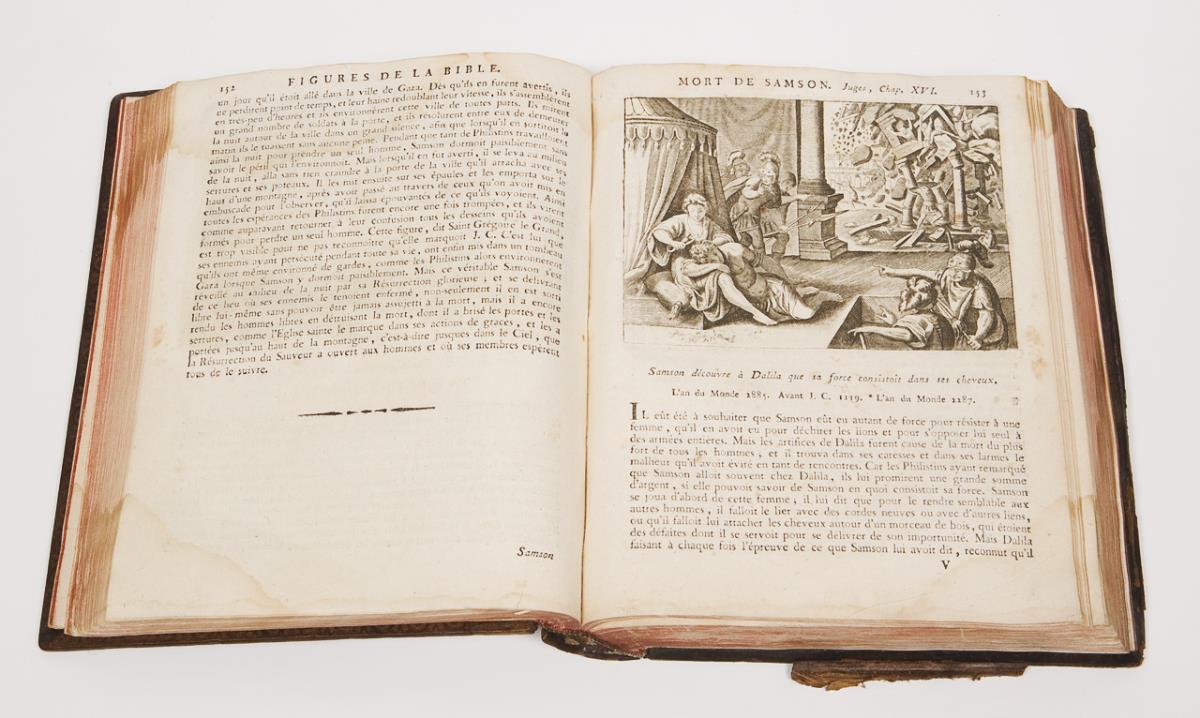 152
FIGURES DE LA BIBLE.
un jour qu'il étoit allé dans la ville de Gaza. Dès qu'ils en furent avertis, ils
ne perdirent point de temps, et leur haine redoublant leur vitesse, ils s'assemblèrent
en très-peu d'heures et ils environnèrent cette ville de toutes parts. Ils mirent
un grand nombre de soldats à la porte, et ils résolurent entre eux de demeurer
la nuit autour de la ville dans un grand silence, afin que lorsqu'il en sortiroit la
matin ils le tuassent sans aucune peine. Pendant que tant de Philistins travailloient
ainsi la nuit pour prendre un seul homme, Samson dormoit paisiblement sans
savoir le péril qui l'environnoit. Mais lorsqu'il en fut averti, il se leva au milieu
de la nuit, alla sans rien craindre à la porte de la ville qu'il arracha avec ses
serrures et ses poteaux. Il les mit ensuite sur ses épaules et les emporta sur le
haut d'une montagne, après avoir passé au travers de ceux qu'on avoit mis en
embuscade pour l'observer, qu'il laissa épouvantés de ce qu'ils voyoient. Ainsi
toutes les espérances des Philistins furent encore une fois trompées, et ils virent
comme auparavant retourner à leur confusion tous les desseins qu'ils avoient
formés pour perdre un seul homme. Cette figure, dit Saint Grégoire le Grand,
est trop visible pour ne pas reconnoître qu'elle marquoit J. C. C'est lui que
ses ennemis ayant persécuté pendant toute sa vie, ont enfin mis dans un tombeau
qu'ils ont même environné de gardes, comme les Philistins alors environnèrent
Gaza lorsque Samson y dormoit paisiblement. Mais ce véritable Samson s'est
réveillé au milieu de la nuit par sa Résurrection glorieuse ; et se délivrant
de ce lieu où ses ennemis le tenoient enfermé, non-seulement il en est sorti
libre lui-même sans pouvoir être jamais assujetti à la mort, mais il a encore
rendu les hommes libres en détruisant la mort, dont il a brisé les portes et les
serrures, comme l'Eglise sainte le marque dans ses actions de graces, et les a
portées jusqu'au haut de la montagne, c'est-à-dire jusques dans le Ciel, que
la Résurrection du Sauveur a ouvert aux hommes et où ses membres espèrent
tous de le suivre.
Samson
MORT DE SAMSON. Juges, Chap. XVI.
153
Samson découvre à Dalila que sa force consistoit dans ses cheveux.
L'an du Monde 2885. Avant J. C. 1119. * L'an du Monde 2287.
IL eût été à souhaiter que Samson eût eu autant de force pour résister à une
femme, qu'il en avoit eu pour déchirer les lions et pour s'opposer lui seul à
des armées entières. Mais les artifices de Dalila furent cause de la mort du plus
fort de tous les hommes ; et il trouva dans ses caresses et dans ses larmes le
malheur qu'il avoit évité en tant de rencontres. Car les Philistins ayant remarqué
que Samson alloit souvent chez Dalila, ils lui promirent une grande somme
d'argent, si elle pouvoit savoir de Samson en quoi consistoit sa force. Samson
se joua d'abord de cette femme ; il lui dit que pour le rendre semblable aux
autres hommes, il falloit le lier avec des cordes neuves ou avec d'autres liens,
ou qu'il falloit lui attacher les cheveux autour d'un morceau de bois, qui étoient
des défaites dont il se servoit pour se délivrer de son importunité. Mais Dalila
faisant à chaque fois l'épreuve de ce que Samson lui avoit dit, reconnut qu'il
V